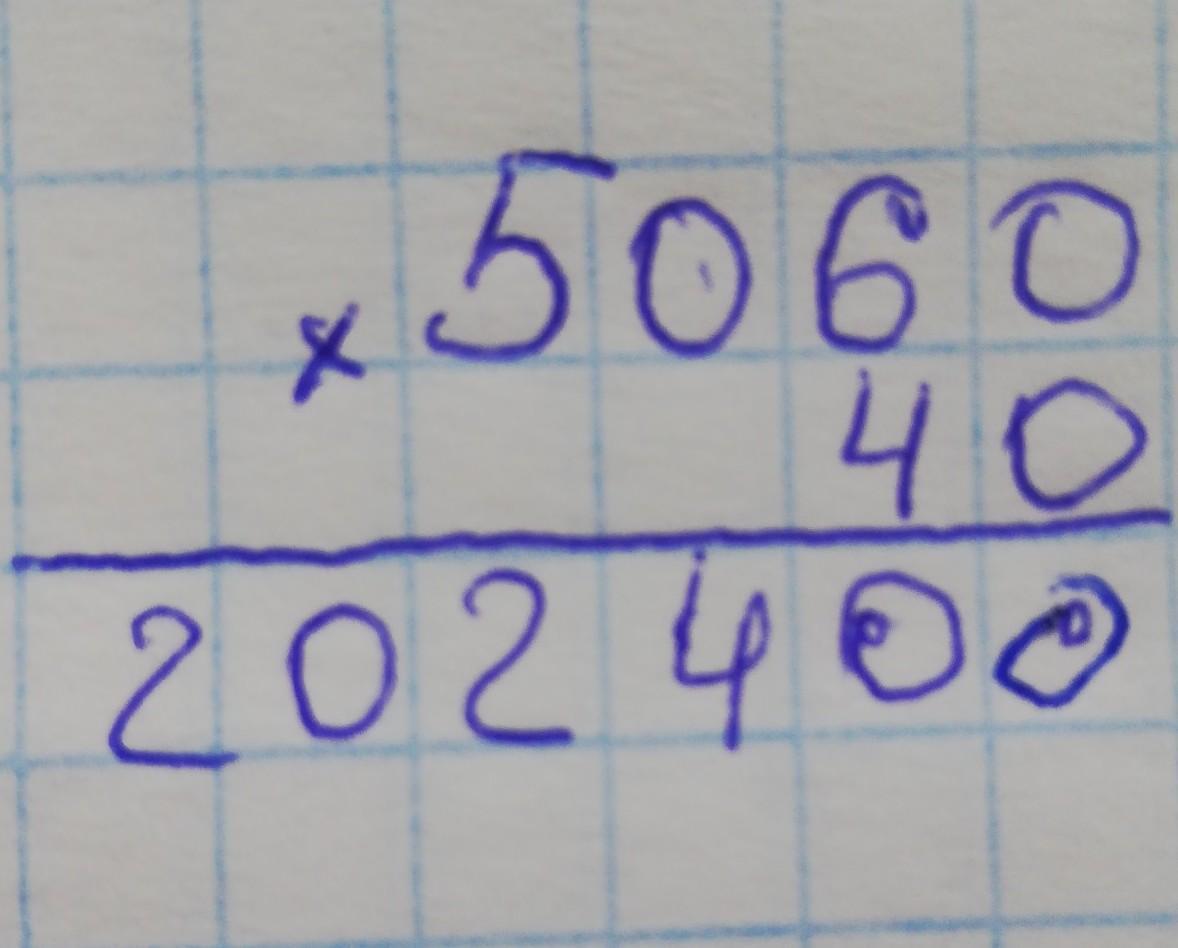 5060
×
40
202400